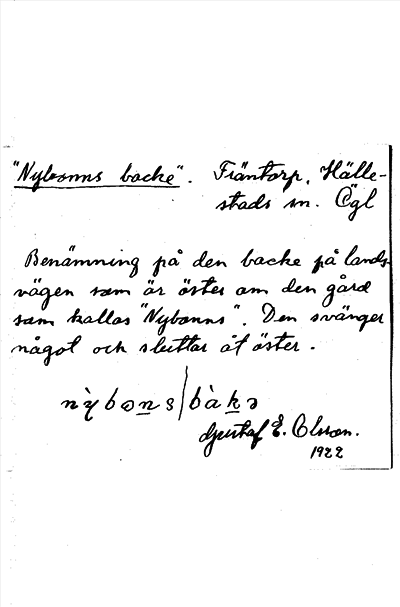 "Nybonns backe". Träntorp, Hälle-
stads sn. Ögl
Benämning på den backe på lands-
vägen som är öster om den gård
som kallas "Nybonns". Den svänger
något och sluttar åt öster.
nỳbɷns/bàkə
Gustaf E. Olsson.
1922